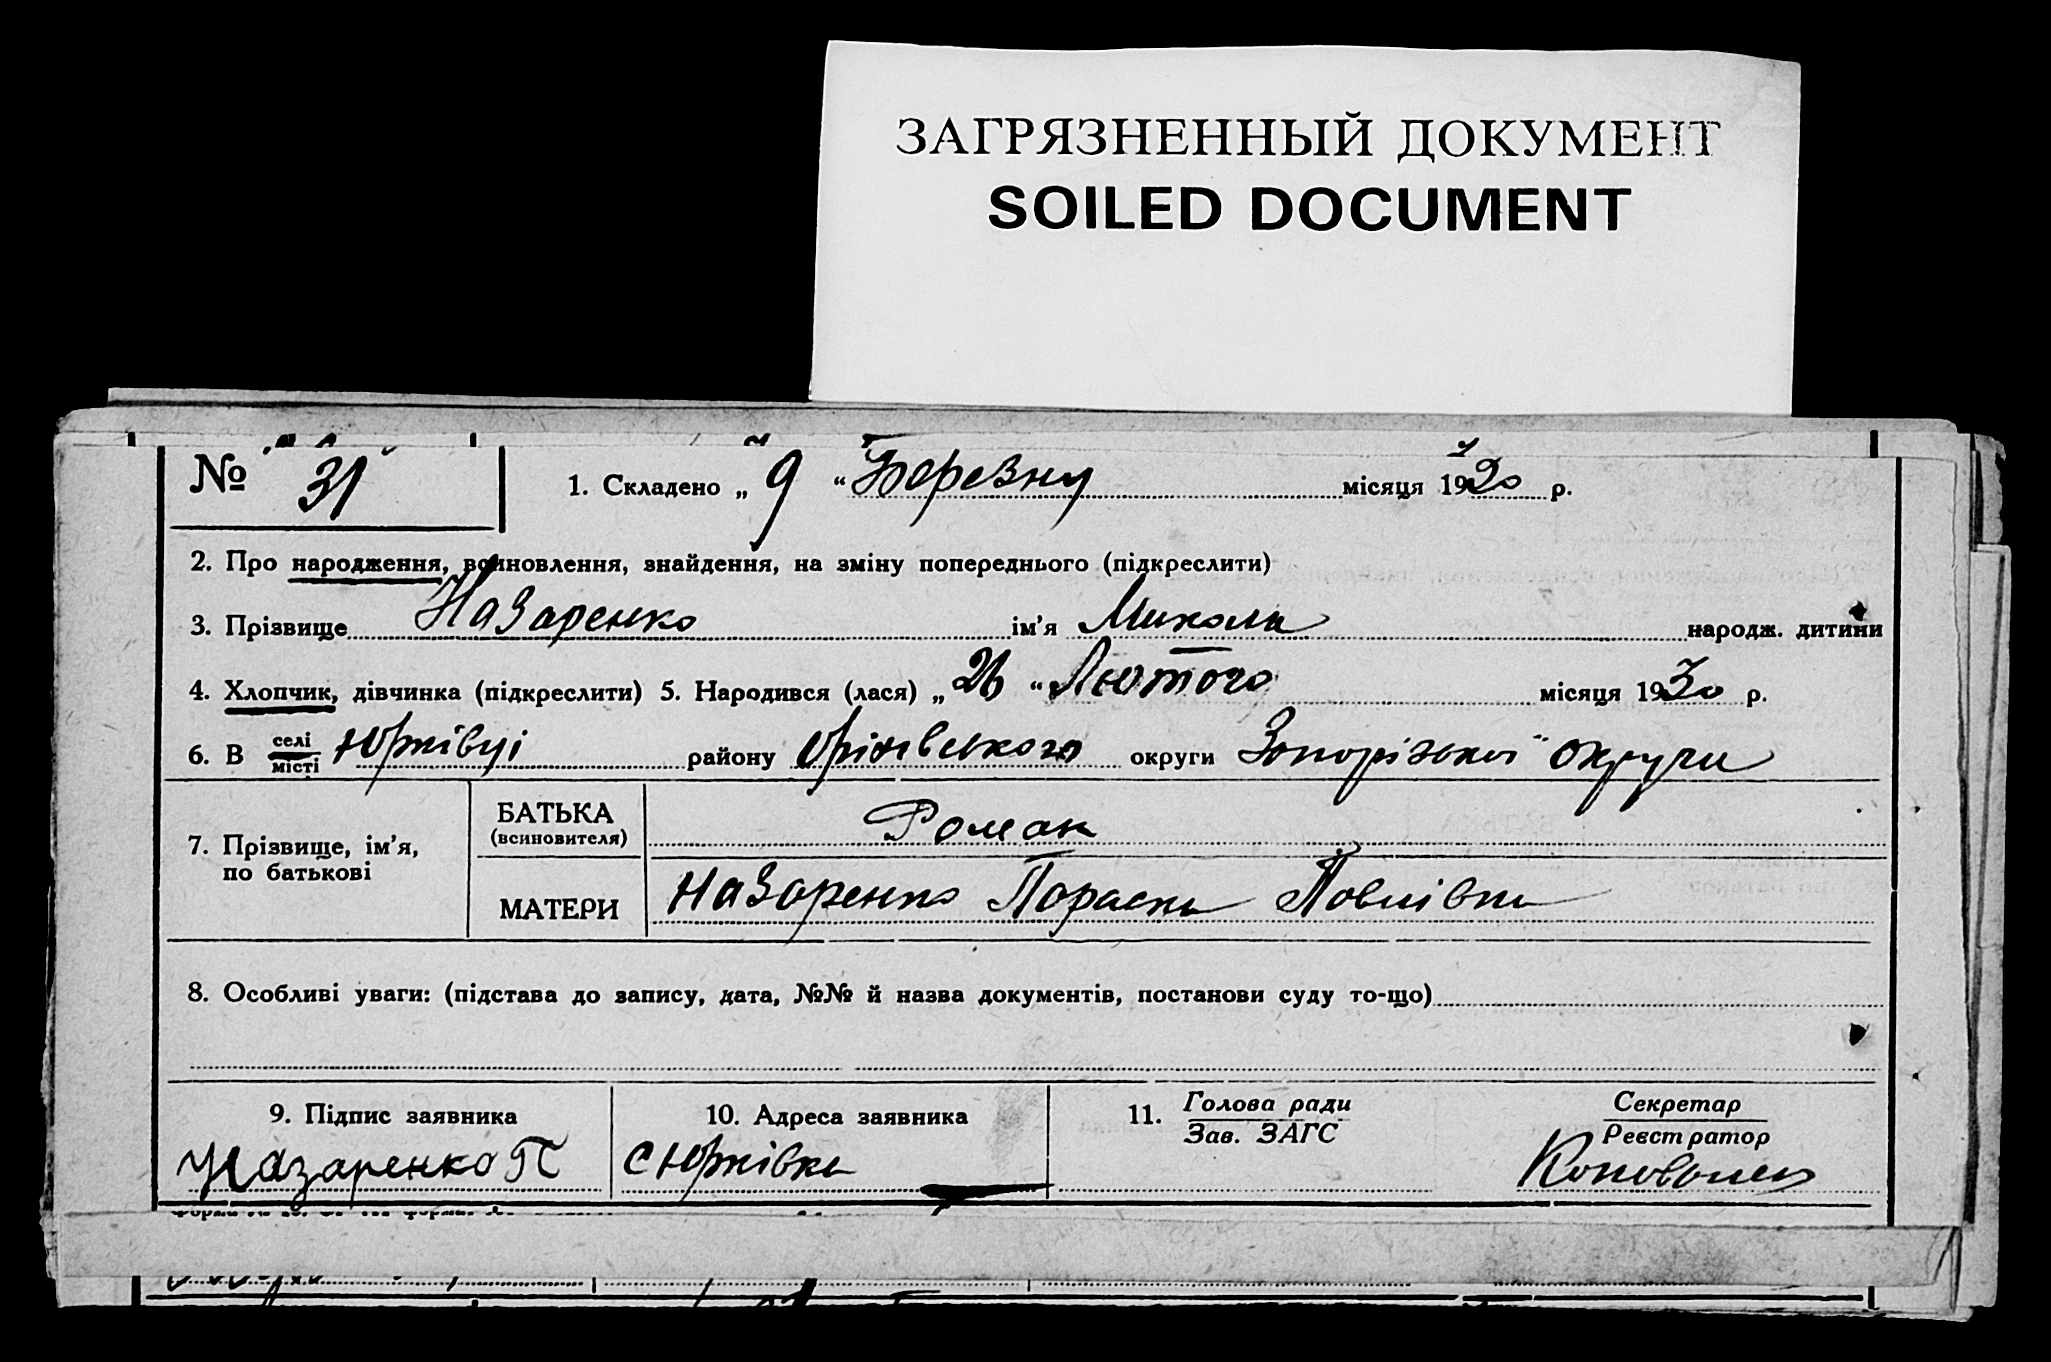 ЗАГРЯЗНЕННЫЙ ДОКУМЕНТ
SOILED DOCUMENT
№ 31 1. Складено „ 9 “ Березня місяця 1930 р.
2. Про народження, всиновлення, знайдення, на зміну попереднього (підкреслити)
3. Прізвище Назаренко ім’я Микола народж. дитини
4. Хлопчик, дівчинка (підкреслити) 5. Народився (лася) „ 26 “ Лютого місяця 1930 р.
6. В селі місті Юрківці району Оріхівського округи Запорізької округи
7. Прізвище, ім’я, по батькові
БАТЬКА (всиновителя) Роман
МАТЕРИ Назаренко Параска Павлівна
8. Особливі уваги: (підстава до запису, дата, №№ й назва документів, постанови суду то-що)
9. Підпис заявника 10. Адреса заявника 11. Голова ради Секретар
Зав. ЗАГС Реєстратор
Назаренко П с Юрківка